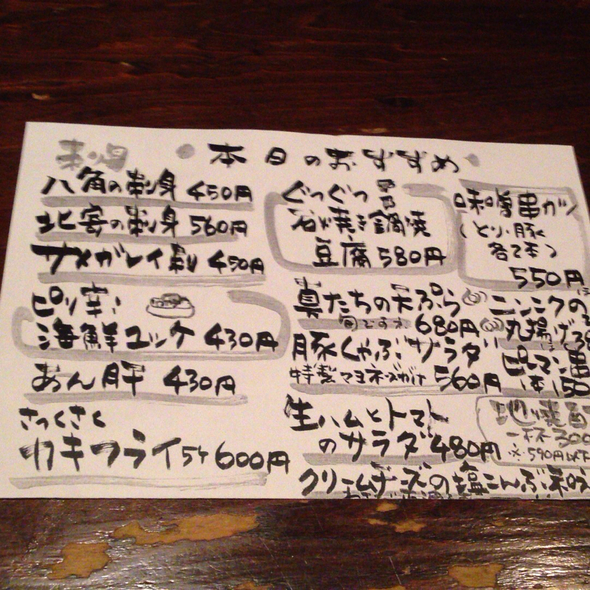 本日のおすすめ
刺身
八角の刺身 450円
北寄の刺身 560円
サメガレイ刺 450円
ピリ辛!
海鮮ユッケ 430円
あん肝 430円
さっくさく
カキフライ5ケ600円
ぐつぐつ
石焼き鍋焼
豆腐 580円
味噌串カツ
(とり・豚
各2本)
550円
真たちの天ぷら
680円
豚しゃぶサラダ
特製マヨネーズがけ 560円
生ハムとトマト
のサラダ 480円
クリームチーズの塩こんぶ
ニンニクの
丸揚げ
ピーマン串
1本150
地焼酎
一杯300
※590円以下